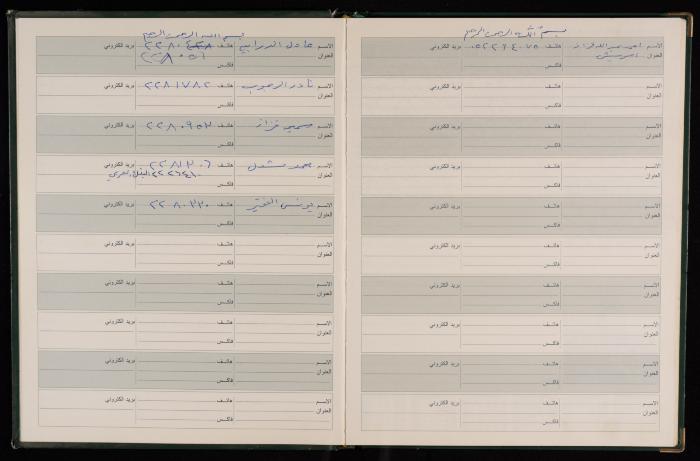 بسم الله الرحمن الرحيم
الاسم احمد عبد الله هاتف ٠٥٢٢٦٤٠٧٥ بريد الكتروني
العنوان
فاكس
الاسم هاتف بريد الكتروني
العنوان
فاكس
الاسم هاتف بريد الكتروني
العنوان
فاكس
الاسم هاتف بريد الكتروني
العنوان
فاكس
الاسم هاتف بريد الكتروني
العنوان
فاكس
الاسم هاتف بريد الكتروني
العنوان
فاكس
الاسم هاتف بريد الكتروني
العنوان
فاكس
الاسم هاتف بريد الكتروني
العنوان
فاكس
الاسم هاتف بريد الكتروني
العنوان
فاكس
الاسم هاتف بريد الكتروني
العنوان
فاكس
بسم الله الرحمن الرحيم
الاسم عادل هاتف بريد الكتروني
العنوان ٢٢٨٠٥٦
فاكس
الاسم نادر الرجوب هاتف ٢٢٨١٧٨٢ بريد الكتروني
العنوان
فاكس
الاسم سمير قزاز هاتف ٢٢٨٠٩٥٣ بريد الكتروني
العنوان
فاكس
الاسم محمد مشعل هاتف ٢٢٨١٣٠٦ بريد الكتروني
العنوان ٢٢٢٦٤١٠
فاكس
الاسم يونس هاتف ٢٢٨٠٣٣٠ بريد الكتروني
العنوان
فاكس
الاسم هاتف بريد الكتروني
العنوان
فاكس
الاسم هاتف بريد الكتروني
العنوان
فاكس
الاسم هاتف بريد الكتروني
العنوان
فاكس
الاسم هاتف بريد الكتروني
العنوان
فاكس
الاسم هاتف بريد الكتروني
العنوان
فاكس